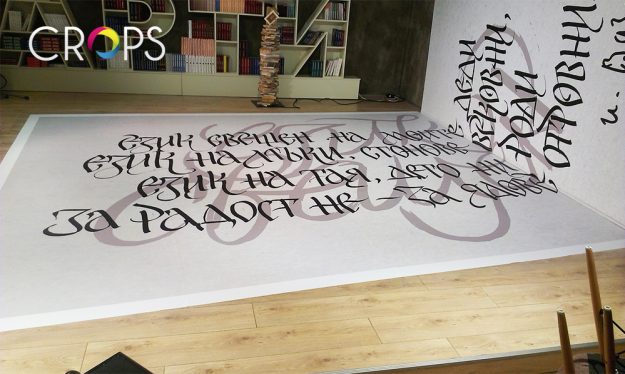 CROPS
ЕЗИК СВЕЩЕН НА МОИТЕ ДЕДИ
ЕЗИК НА МЪКИ, СТОНОВЕ ВЕКОВНИ,
ЕЗИК НА ТАЯ, ДЕТО НИ РОДИ
ЗА РАДОСТ НЕ – ЗА ЯДОВЕ ОТРОВНИ
И. Ваз